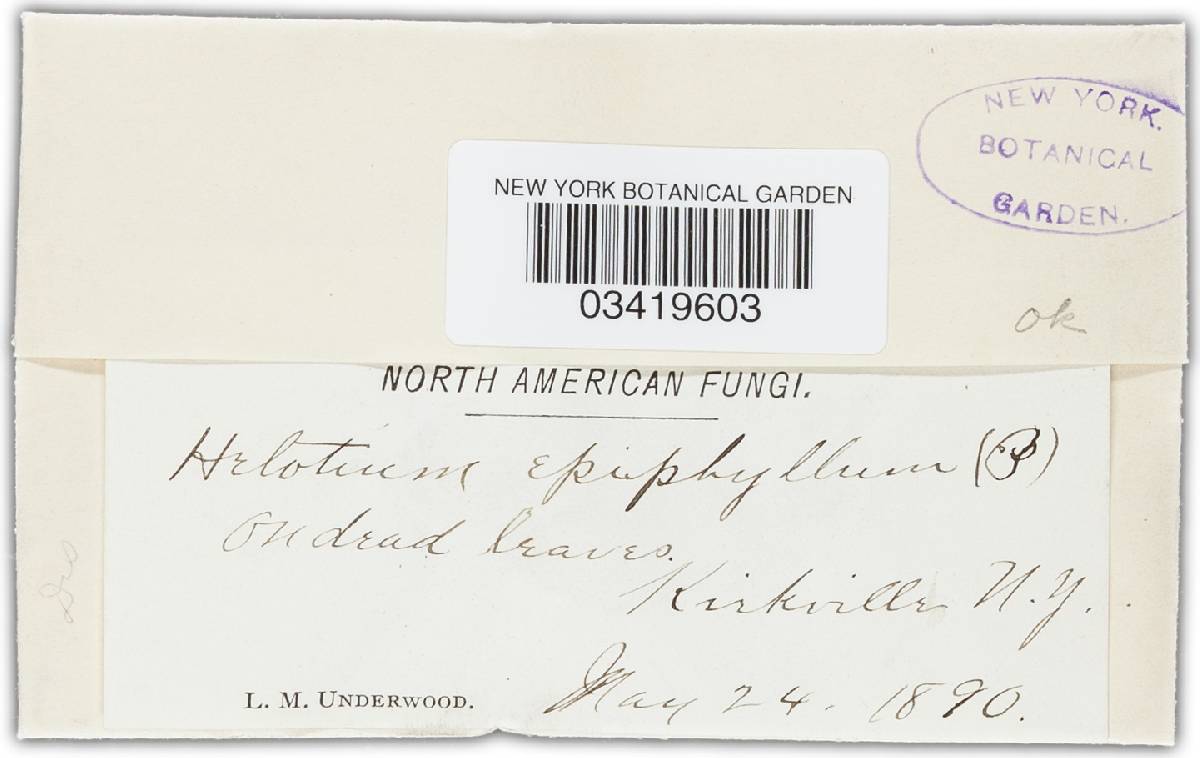 NEW YORK.
BOTANICAL
GARDEN.
NEW YORK BOTANICAL GARDEN
03419603
ok
NORTH AMERICAN FUNGI.
Helotium epiphyllum (P)
on dead leaves.
Kirkville N.Y.
May 24. 1890.
L. M. UNDERWOOD.